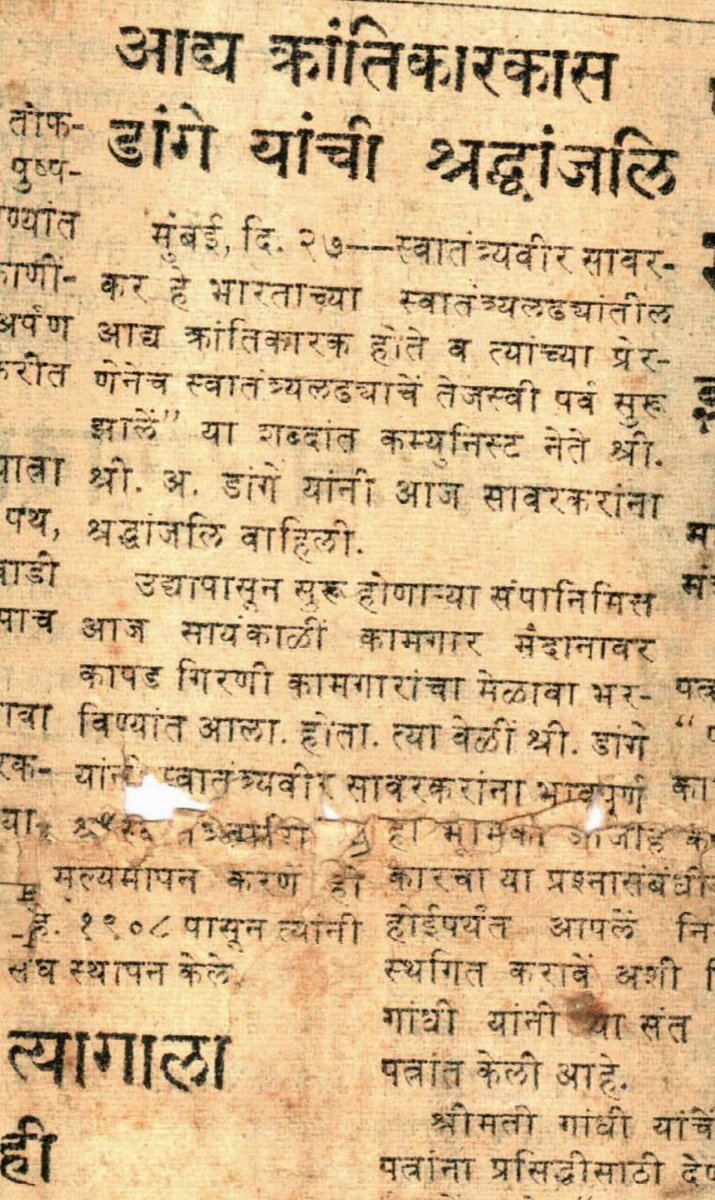 आद्य क्रांतिकारकास
डांगे यांची श्रद्धांजलि
मुंबई, दि. २७——स्वातंत्र्यवीर सावर-
कर हे भारताच्या स्वातंत्र्यलढ्यांतील
आद्य क्रांतिकारक होते व त्यांच्या प्रेर-
णेनेच स्वातंत्र्यलढ्याचें तेजस्वी पर्व सुरू
झालें” या शब्दांत कम्युनिस्ट नेते श्री.
श्री. अ. डांगे यांनी आज सावरकरांना
श्रद्धांजलि वाहिली.
उद्यापासून सुरू होणाऱ्या संपानिमित्त
आज सायंकाळीं कामगार मैदानावर
कापड गिरणी कामगारांचा मेळावा भर-
विण्यांत आला. होता. त्या वेळीं श्री. डांगे
यांनी स्वातंत्र्यवीर सावरकरांना भावपूर्ण
तोफ-
पुष्प-
ण्यांत
अर्पण
करीत
पथ,
वाडी
पाच
मूल्यमापन करणें ही
१९०८ पासून त्यांनी
संघ स्थापन केले.
त्यागाला
ही
कारचा या प्रश्नासंबंधी
होईपर्यंत आपलें
स्थगित करावें अशी
गांधी यांनी या संत
पत्रांत केली आहे.
श्रीमती गांधी यांचें
पत्रांना प्रसिद्धीसाठी